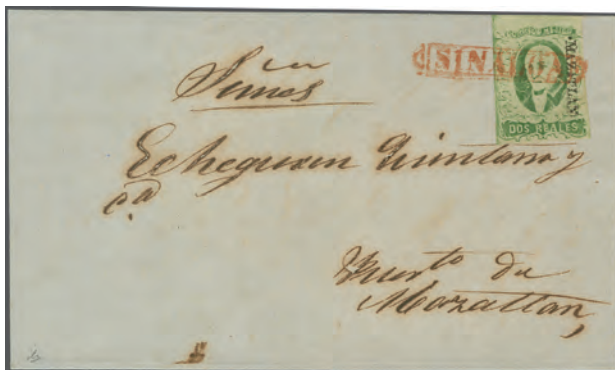 SINALOA
MAZATLAN
DOS REALES
Señres
Echeguren Quintana y
ca
Puerto de
Mazatlan,